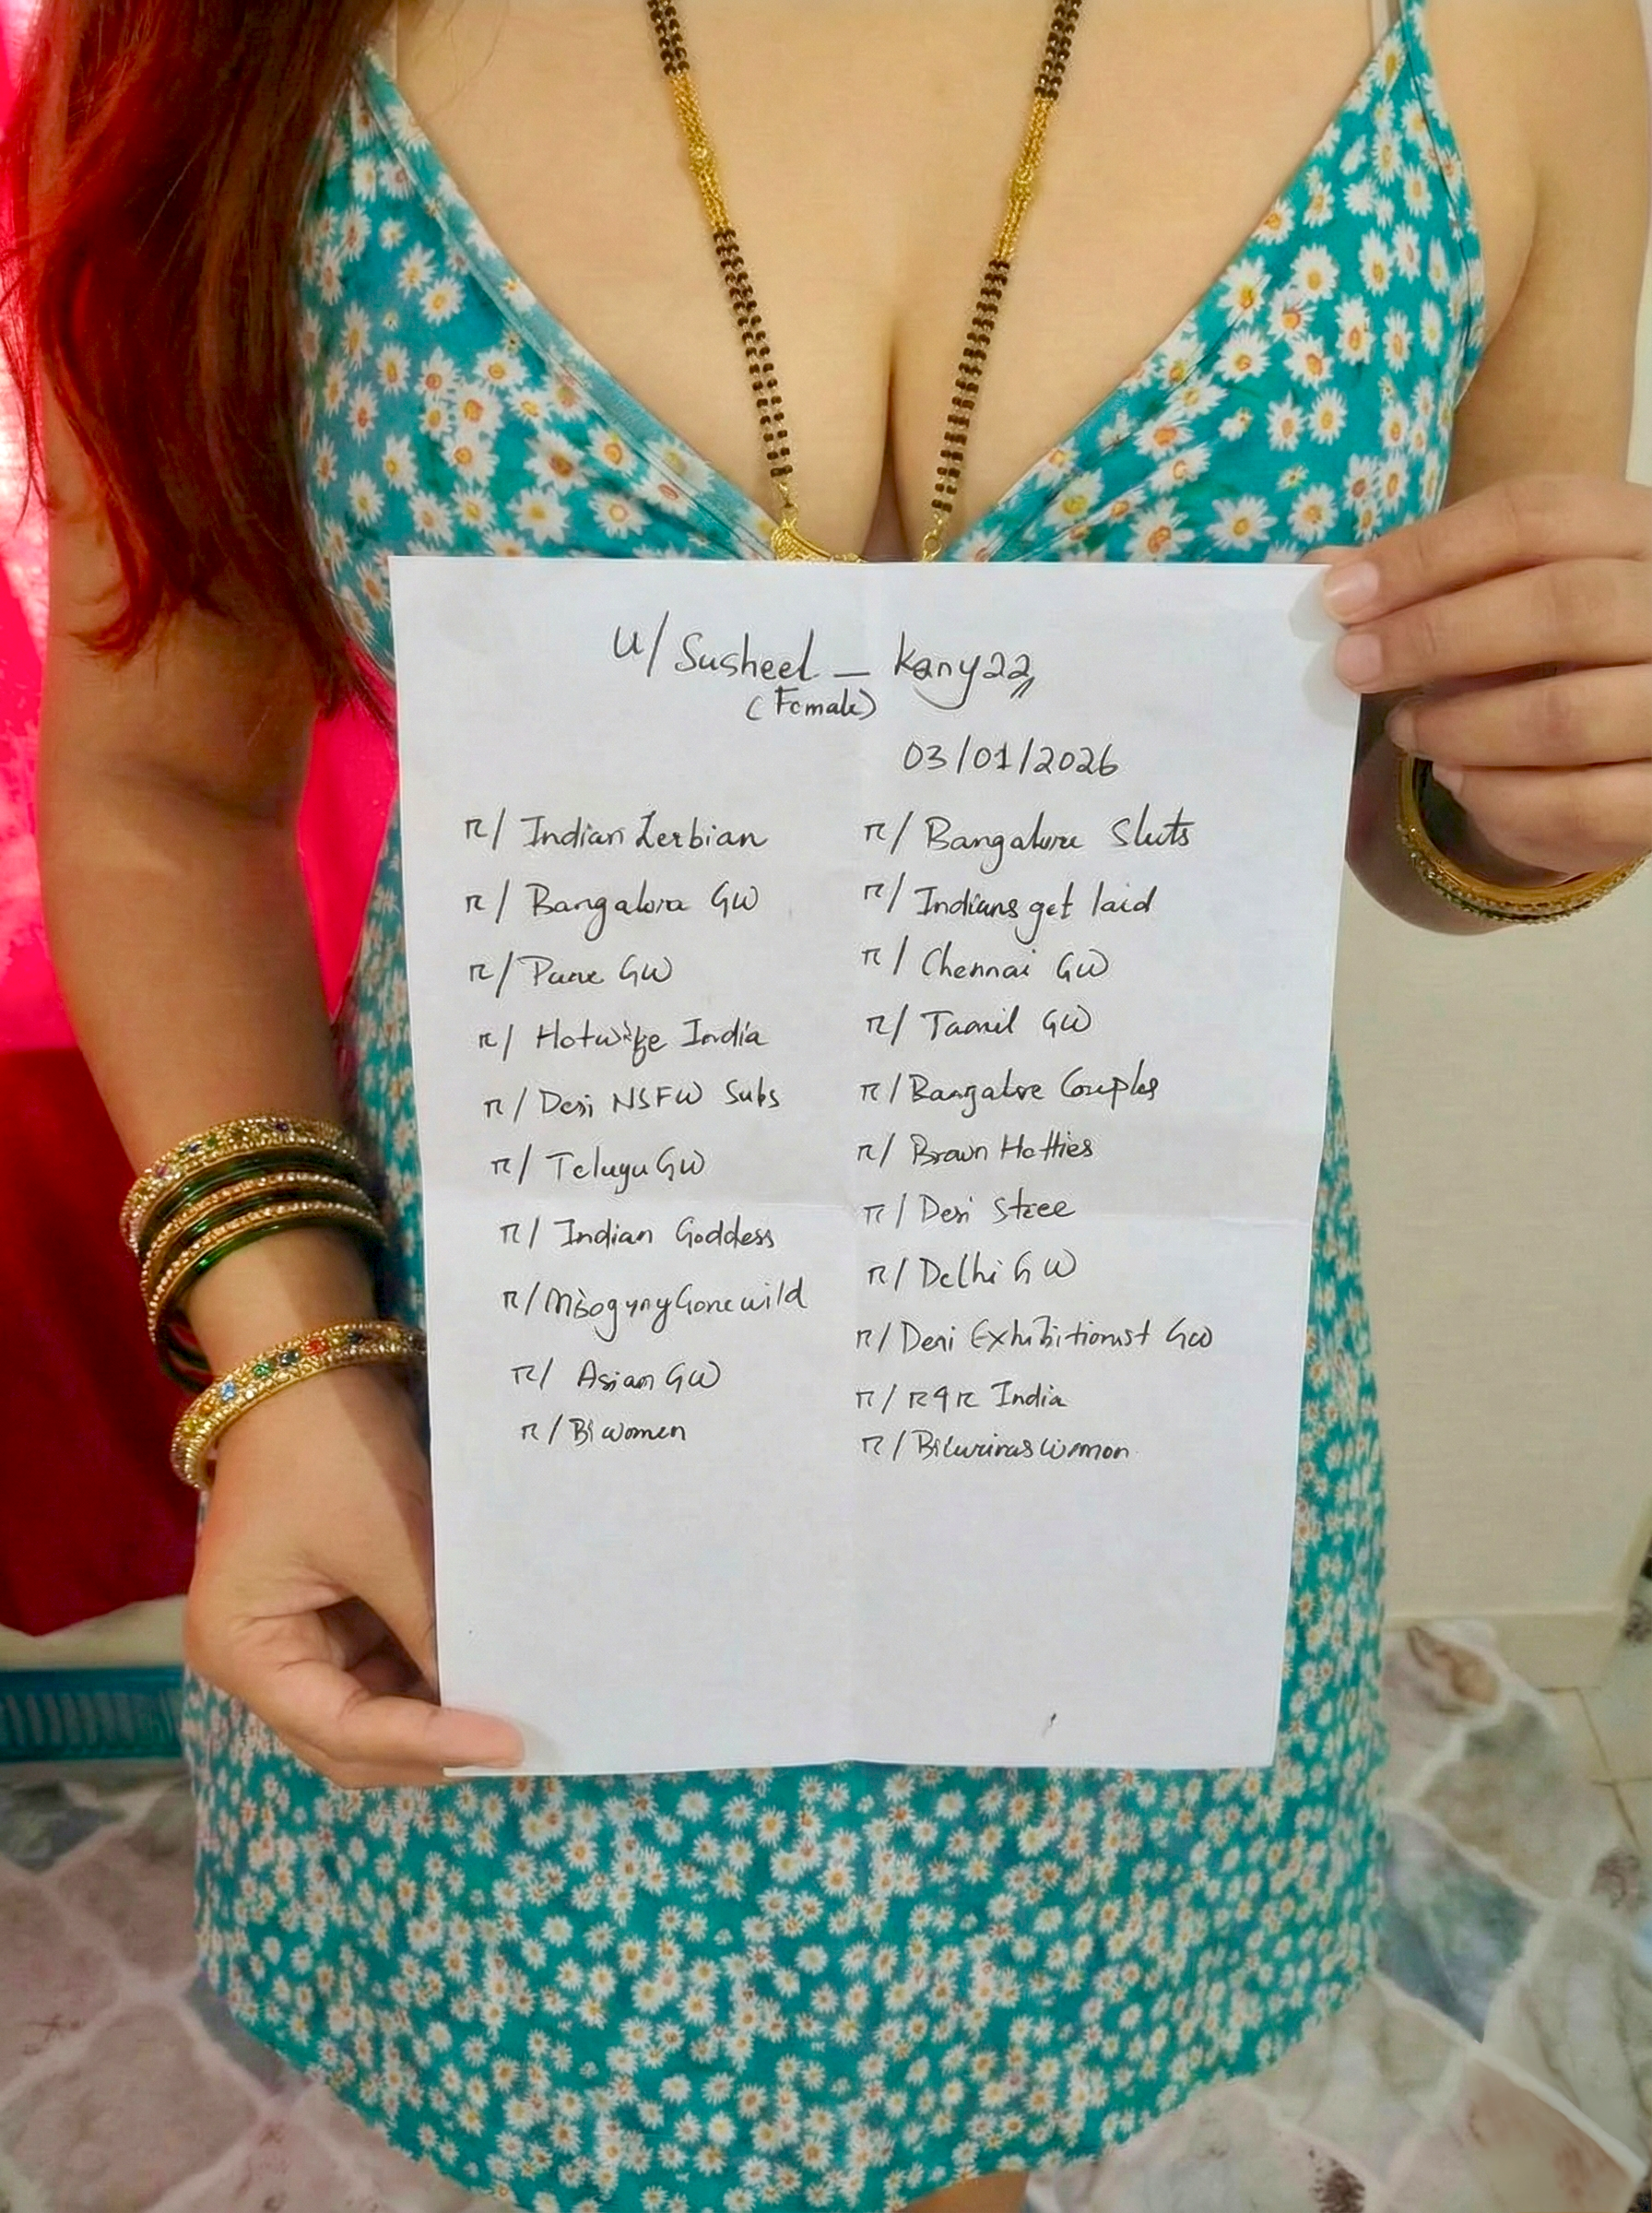 u/Susheel_kanyaa
(Female)
03/01/2026
r/ Indian Lesbian
r/ Bangalore GW
r/ Pune GW
r/ Hotwife India
r/ Desi NSFW Subs
r/ Telugu GW
r/ Indian Goddess
r/ MisogynyGonewild
r/ Asian GW
r/ Bi women
r/ Bangalore Sluts
r/ Indians get laid
r/ Chennai GW
r/ Tamil GW
r/ Bangalore Couples
r/ Brown Hotties
r/ Desi Stree
r/ Delhi GW
r/ Desi Exhibitionist GW
r/ R4R India
r/